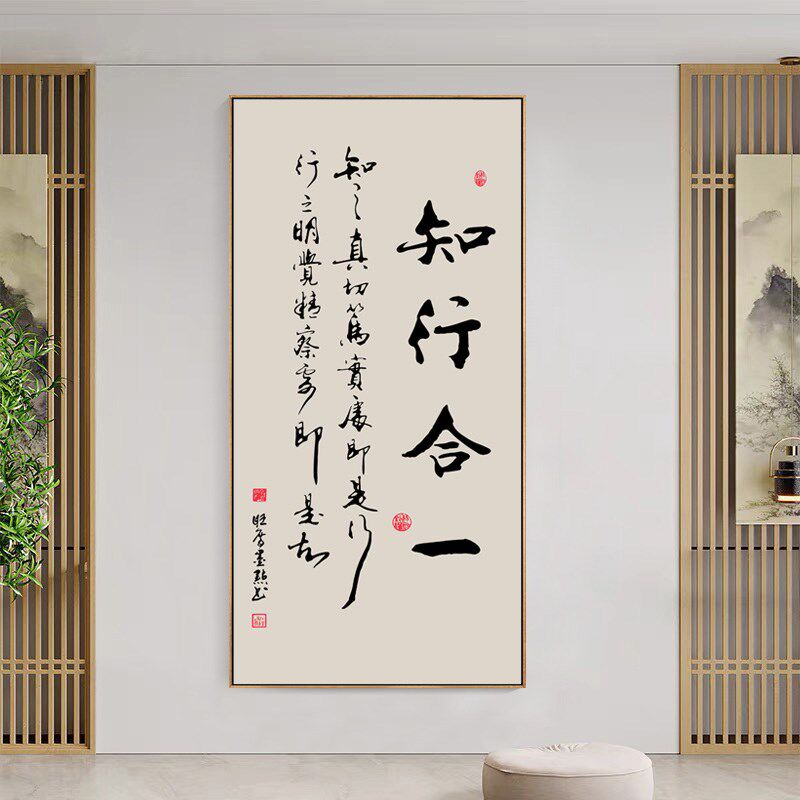 知行合一
知之真切篤實處即是行
行之明覺精察處即是知
墨點书